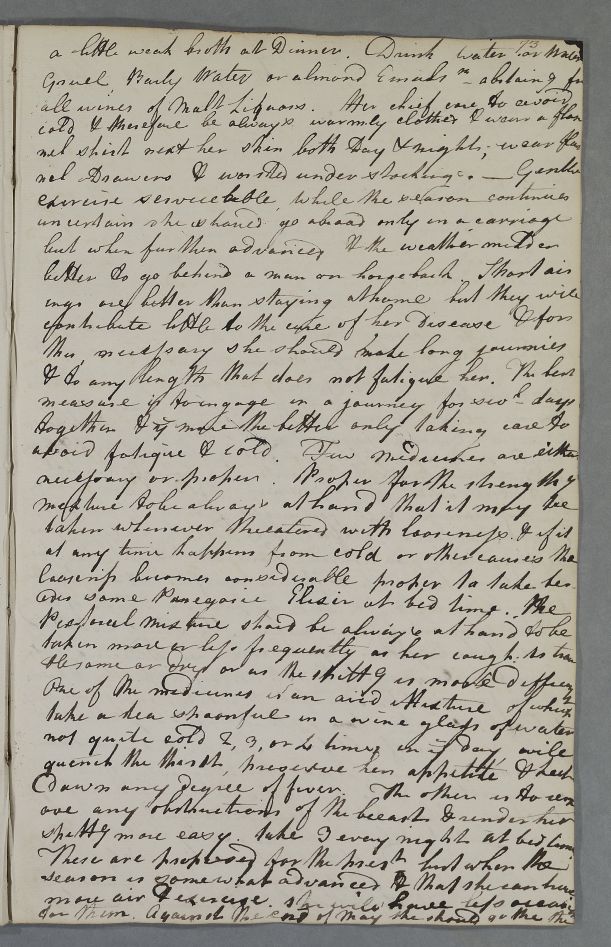 73
a little weak broth at Dinner. Drink water or Water
Gruel, Barly Water or almond Emuls.n abstaing from
all wines & Malt Liquors. Her chief care to avoid
cold & therefore be always warmly clothed & wear a flan
nel shirt next her skin both Day & night; wear flan
nel Drawers & worsted under stockings. — Gentle
exercise serviceable, while the season continues
uncertain she should go abroad only in a carriage
but when further advanced & the weather milder
better to go behind a man on horseback. Short air
ings are better than staying at home but they will
contribute little to the cure of her Disease & for
this, necessary she should make long journies
& to any length that does not fatigue her. The best
measure is to engage in a journey for sev.l days
together & ye more the better only taking care to
avoid fatigue & cold. Few medicines are either
necessary or proper. Proper for the strengthg
mixture to be always at hand that it may be
taken whenever threatened with looseness & if it
at any time happens from cold or other causes that
looseness becomes considerable proper to take be
sides some Paregoric Elixir at bed time. The
Pectoral mixture should be always at hand to be
taken more or less frequently as her cough is trou
blesome or dry or as the spittg is more Difficult
One of the medicines is an acid Mixture of which
take a tea spoonful in a wine glass of water
not quite cold 2, 3, or 4 times in ye day, will
quench the thirst, preserve her appetite & keep
Down any degree of fever. The other is to rem
ove any obstructions of the breast & render her
spittg more easy. take 3 every night at bed time
These are proposed for the prest but when the
season is somewhat advanced & that she can have
more air & exercise. she will have less occasion
for them. Against the end of May she should go the the